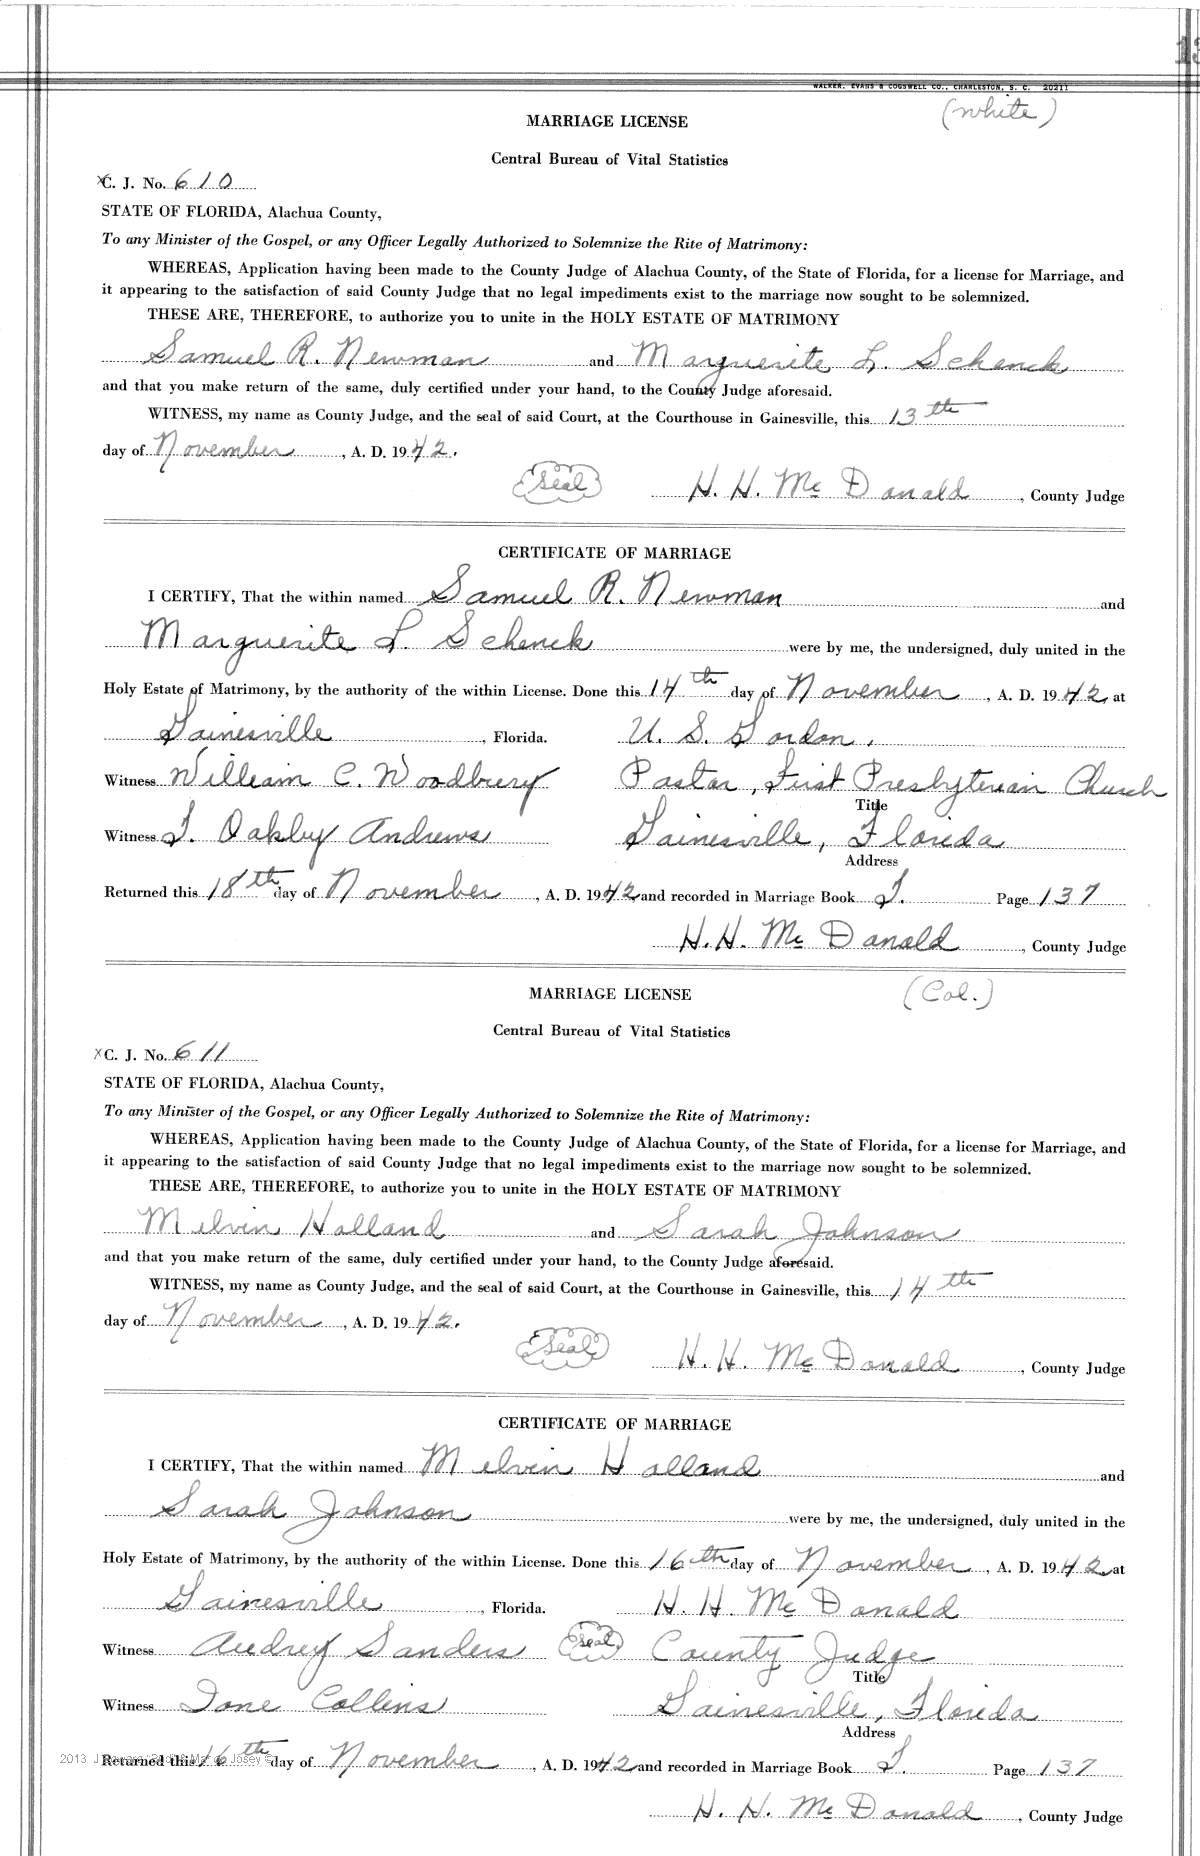 13
WALKER, EVANS & COGSWELL CO., CHARLESTON, S. C. 20211
(White)
MARRIAGE LICENSE
Central Bureau of Vital Statistics
xC. J. No. 610
STATE OF FLORIDA, Alachua County,
To any Minister of the Gospel, or any Officer Legally Authorized to Solemnize the Rite of Matrimony:
WHEREAS, Application having been made to the County Judge of Alachua County, of the State of Florida, for a license for Marriage, and
it appearing to the satisfaction of said County Judge that no legal impediments exist to the marriage now sought to be solemnized.
THESE ARE, THEREFORE, to authorize you to unite in the HOLY ESTATE OF MATRIMONY
Samuel R. Newman and Marguerite L. Schenck
and that you make return of the same, duly certified under your hand, to the County Judge aforesaid.
WITNESS, my name as County Judge, and the seal of said Court, at the Courthouse in Gainesville, this 13th
day of November, A. D. 1942.
Seal H. H. McDonald, County Judge
CERTIFICATE OF MARRIAGE
I CERTIFY, That the within named Samuel R. Newman and
Marguerite L. Schenck were by me, the undersigned, duly united in the
Holy Estate of Matrimony, by the authority of the within License. Done this 14th day of November, A. D. 1942, at
Gainesville, Florida. U. S. Gordon.
Witness William C. Woodbury Pastor, First Presbyterian Church
Title
Witness T. Oakley Andrews Gainesville, Florida
Address
Returned this 18th day of November, A. D. 1942 and recorded in Marriage Book Page 137
H. H. McDonald, County Judge
(Col.)
MARRIAGE LICENSE
Central Bureau of Vital Statistics
xC. J. No. 611
STATE OF FLORIDA, Alachua County,
To any Minister of the Gospel, or any Officer Legally Authorized to Solemnize the Rite of Matrimony:
WHEREAS, Application having been made to the County Judge of Alachua County, of the State of Florida, for a license for Marriage, and
it appearing to the satisfaction of said County Judge that no legal impediments exist to the marriage now sought to be solemnized.
THESE ARE, THEREFORE, to authorize you to unite in the HOLY ESTATE OF MATRIMONY
Melvin Holland and Sarah Johnson
and that you make return of the same, duly certified under your hand, to the County Judge aforesaid.
WITNESS, my name as County Judge, and the seal of said Court, at the Courthouse in Gainesville, this 14th
day of November, A. D. 1942.
Seal H. H. McDonald, County Judge
CERTIFICATE OF MARRIAGE
I CERTIFY, That the within named Melvin Holland and
Sarah Johnson were by me, the undersigned, duly united in the
Holy Estate of Matrimony, by the authority of the within License. Done this 16th day of November, A. D. 1942 at
Gainesville, Florida. H. H. McDonald
Witness Audrey Sanders Seal County Judge
Title
Witness Ione Collins Gainesville, Florida
Address
2013
Returned this 16th day of November, A. D. 1942 and recorded in Marriage Book Page 137
H. H. McDonald, County Judge